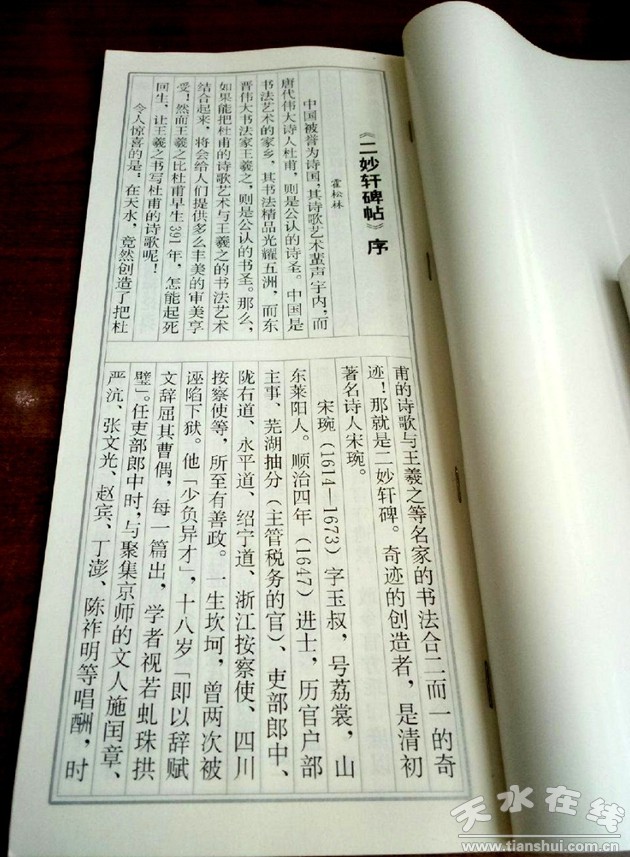 《二妙轩碑帖》序
霍松林
中国被誉为诗国，其诗歌艺术蜚声宇内，而
唐代伟大诗人杜甫，则是公认的诗圣。中国是
书法艺术的家乡，其书法精品光耀五洲，而东
晋伟大书法家王羲之，则是公认的书圣。那么，
如果能把杜甫的诗歌艺术与王羲之的书法艺术
结合起来，将会给人们提供多么丰美的审美享
受！然而王羲之比杜甫早生391年，怎能起死
回生，让王羲之书写杜甫的诗歌呢！
令人惊喜的是：在天水，竟然创造了把杜
甫的诗歌与王羲之等名家的书法合二而一的奇
迹！那就是二妙轩碑。奇迹的创造者，是清初
著名诗人宋琬。
宋琬（1614—1673）字玉叔，号荔裳，山
东莱阳人。顺治四年（1647）进士，历官户部
主事、芜湖抽分（主管税务的官）、吏部郎中、
陇右道、永平道、绍宁道、浙江按察使、四川
按察使等，所至有善政。一生坎坷，曾两次被
诬陷下狱。他「少负异才」，十八岁「即以辞赋
文辞屈其曹偶，每一篇出，学者视若虬珠拱
璧」。任吏部郎中时，与聚集京师的文人施闰章、
严沆、张文光、赵宾、丁澎、陈祚明等唱酬，时
天水在线
www.tianshui.com.cn